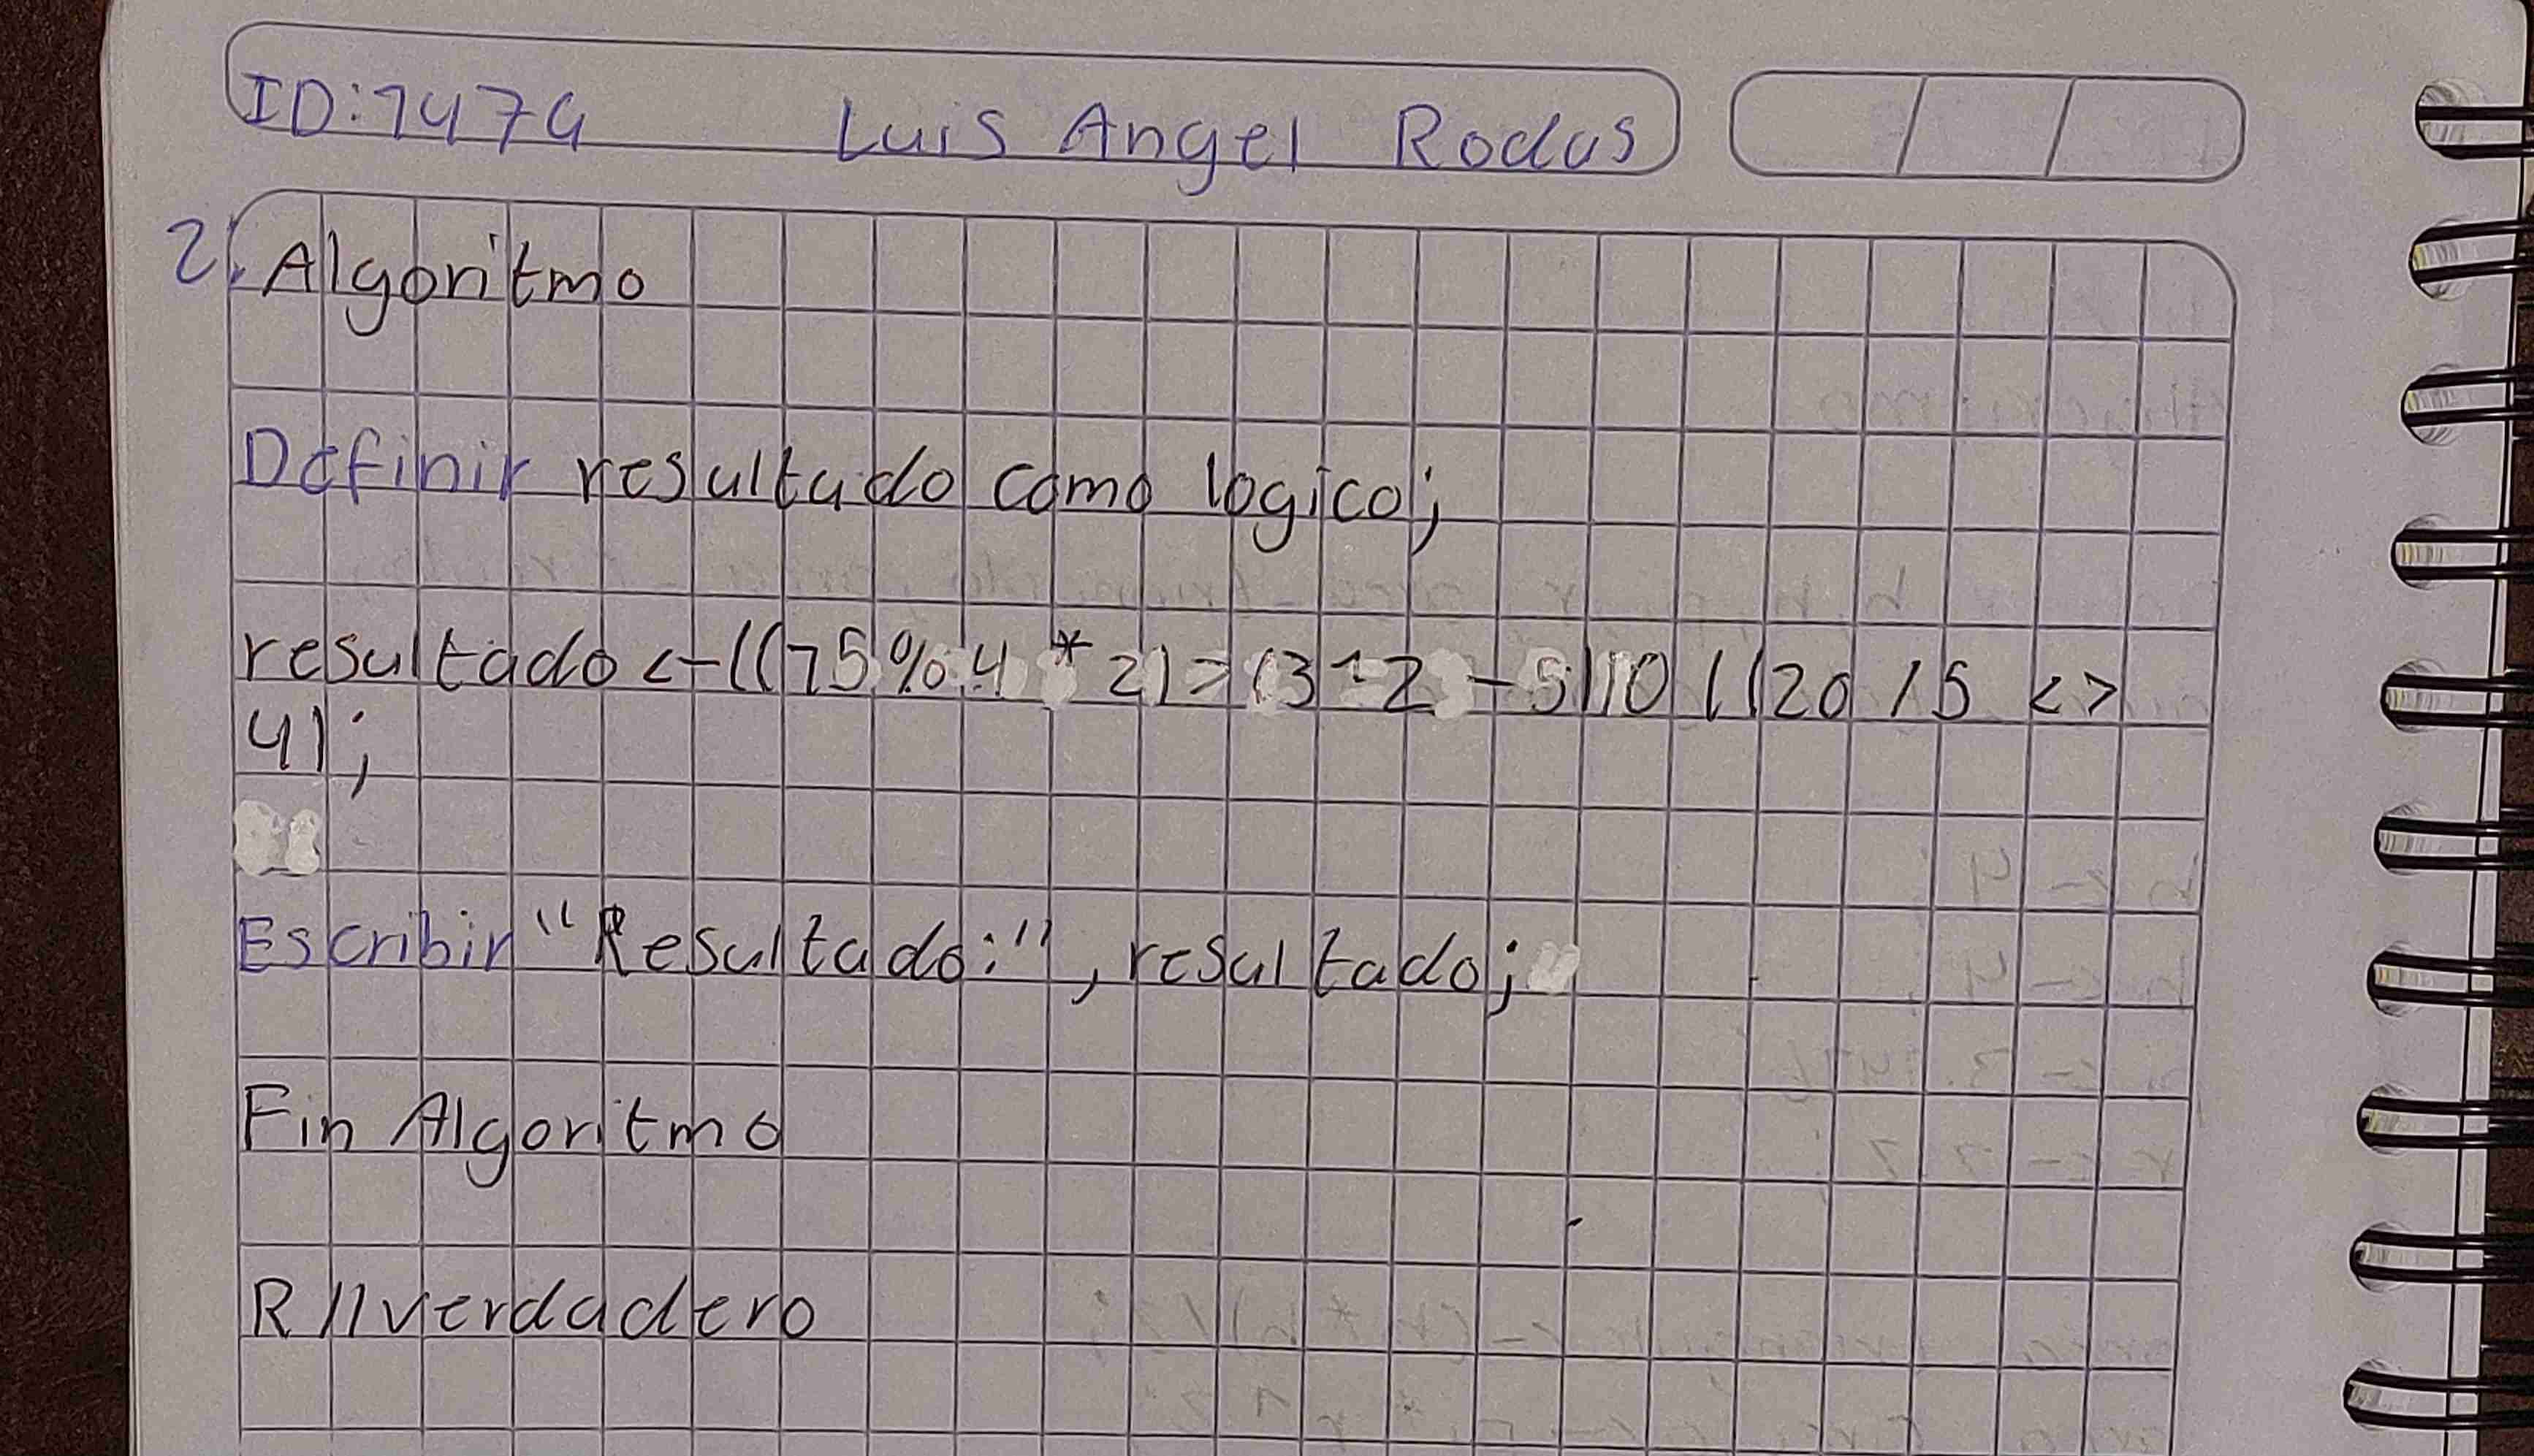 ID:1474 Luis Angel Rodas
2. Algoritmo
Definir resultado como logico;
resultado <-((15%4 * 2) > (3^2 - 5) ) O ((20 / 5 <>
4);
Escribir "Resultado:", resultado;
Fin Algoritmo
R//verdadero